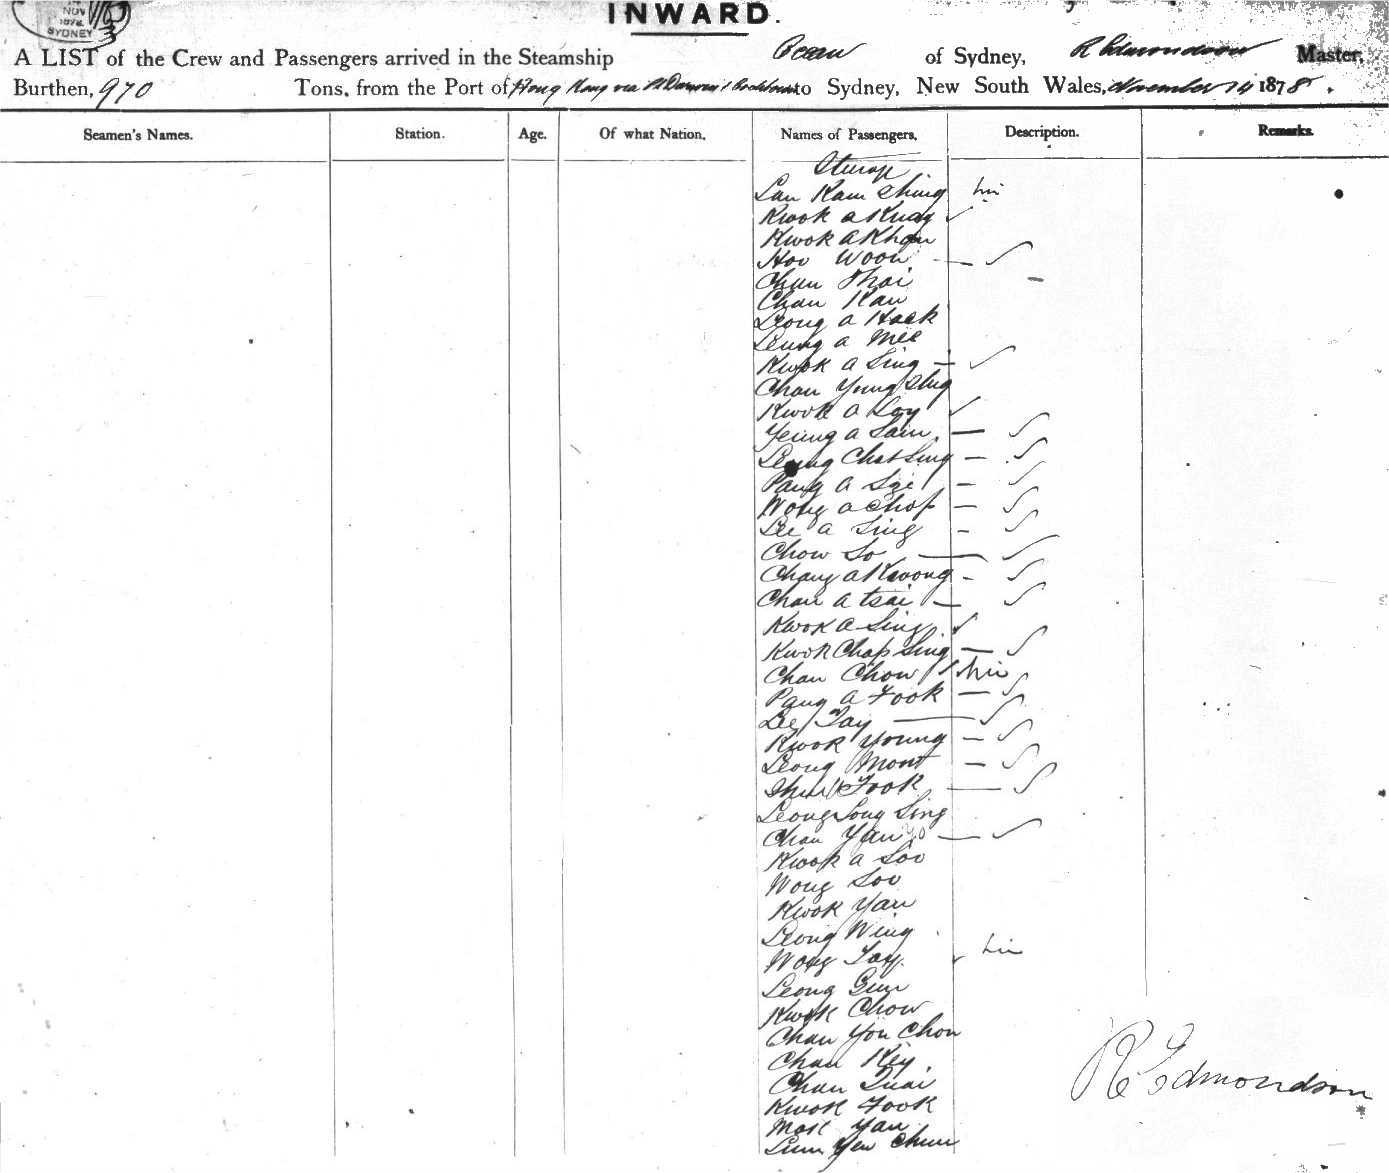 NOV
1878
SYDNEY
INWARD.
A LIST of the Crew and Passengers arrived in the Steamship Ocean of Sydney, R Edmondson Master,
Burthen, 970 Tons, from the Port of Hong Kong via to Sydney, New South Wales, November 14 1878.
Seamen's Names. Station. Age. Of what Nation. Names of Passengers. Description. Remarks.
Kwok a
Kwok a Khan
Hoo Woon
Chan Thai
Chan Kan
Leong a Hack
Leung a Mee
Kwok a Sing
Chan Young
Kwok a Loy
Yeung a Sam
Leung Chat Sing
Pang a
Wong a Chop
Lee a Sing
Chow So
Chang a Kwong
Chan a tsai
Kwok a Sing
Kwok Chap Sing
Chan Chow
Pang a Fook
Lee Tay
Kwok Young
Leong Mont
Fook
Leong Song Sing
Chan Yan
Kwok a Soo
Wong Soo
Kwok Yan
Leong Wing
Wong Tay
Leong Gun
Kwok Chow
Chan You Chon
Chan Key
Chan
Kwok Fook
Mok Yan
Yew Chun
R Edmondson